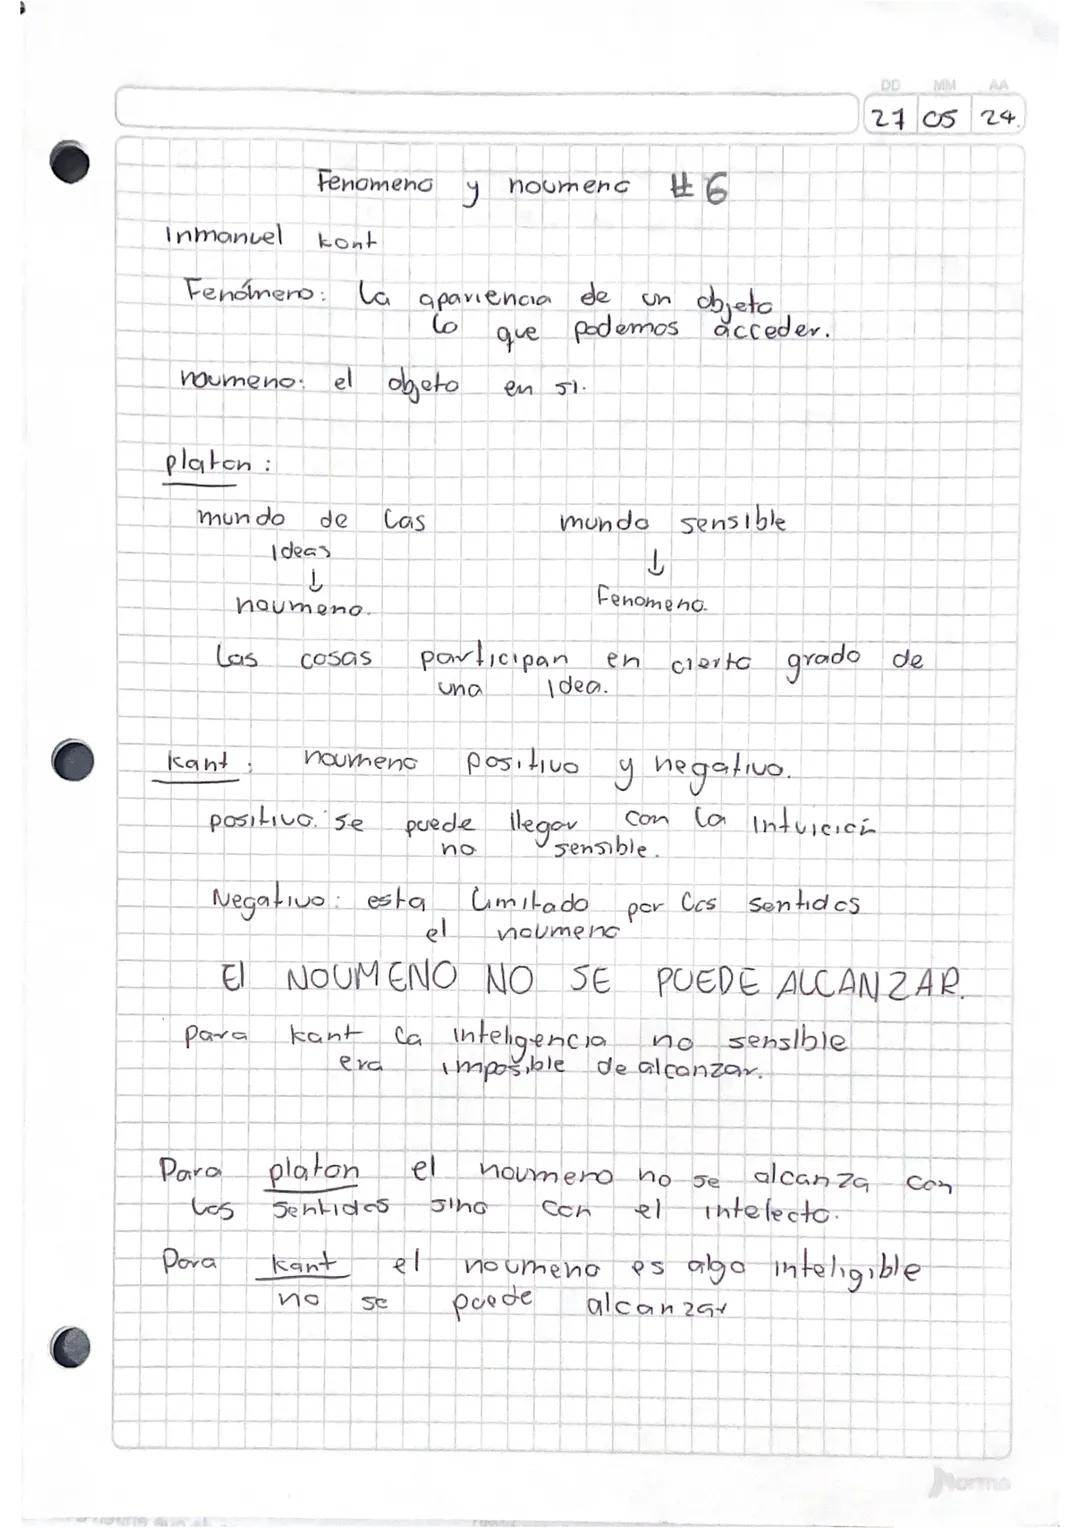 DD MM AA
27 05 24.
Fenomeno y noumeno #6
Inmanuel kant
Fenómeno: la apariencia de un objeto
lo que podemos acceder.
noumeno: el objeto en si.
platon:
mundo de las mundo sensible
Ideas ↓
↓ Fenomeno.
noumeno.
las cosas participan en cierto grado de
una Idea.
kant: noumeno positivo y negativo.
positivo: se puede llegar con la Intuición
no sensible.
Negativo: esta limitado por los sentidos
el noumeno
El NOUMENO NO SE PUEDE ALCANZAR.
para kant la inteligencia no sensible
era imposible de alcanzar.
Para platon el noumeno no se alcanza con
los sentidos sino con el intelecto.
Para kant el noumeno es algo inteligible
no se puede alcanzar
Norma